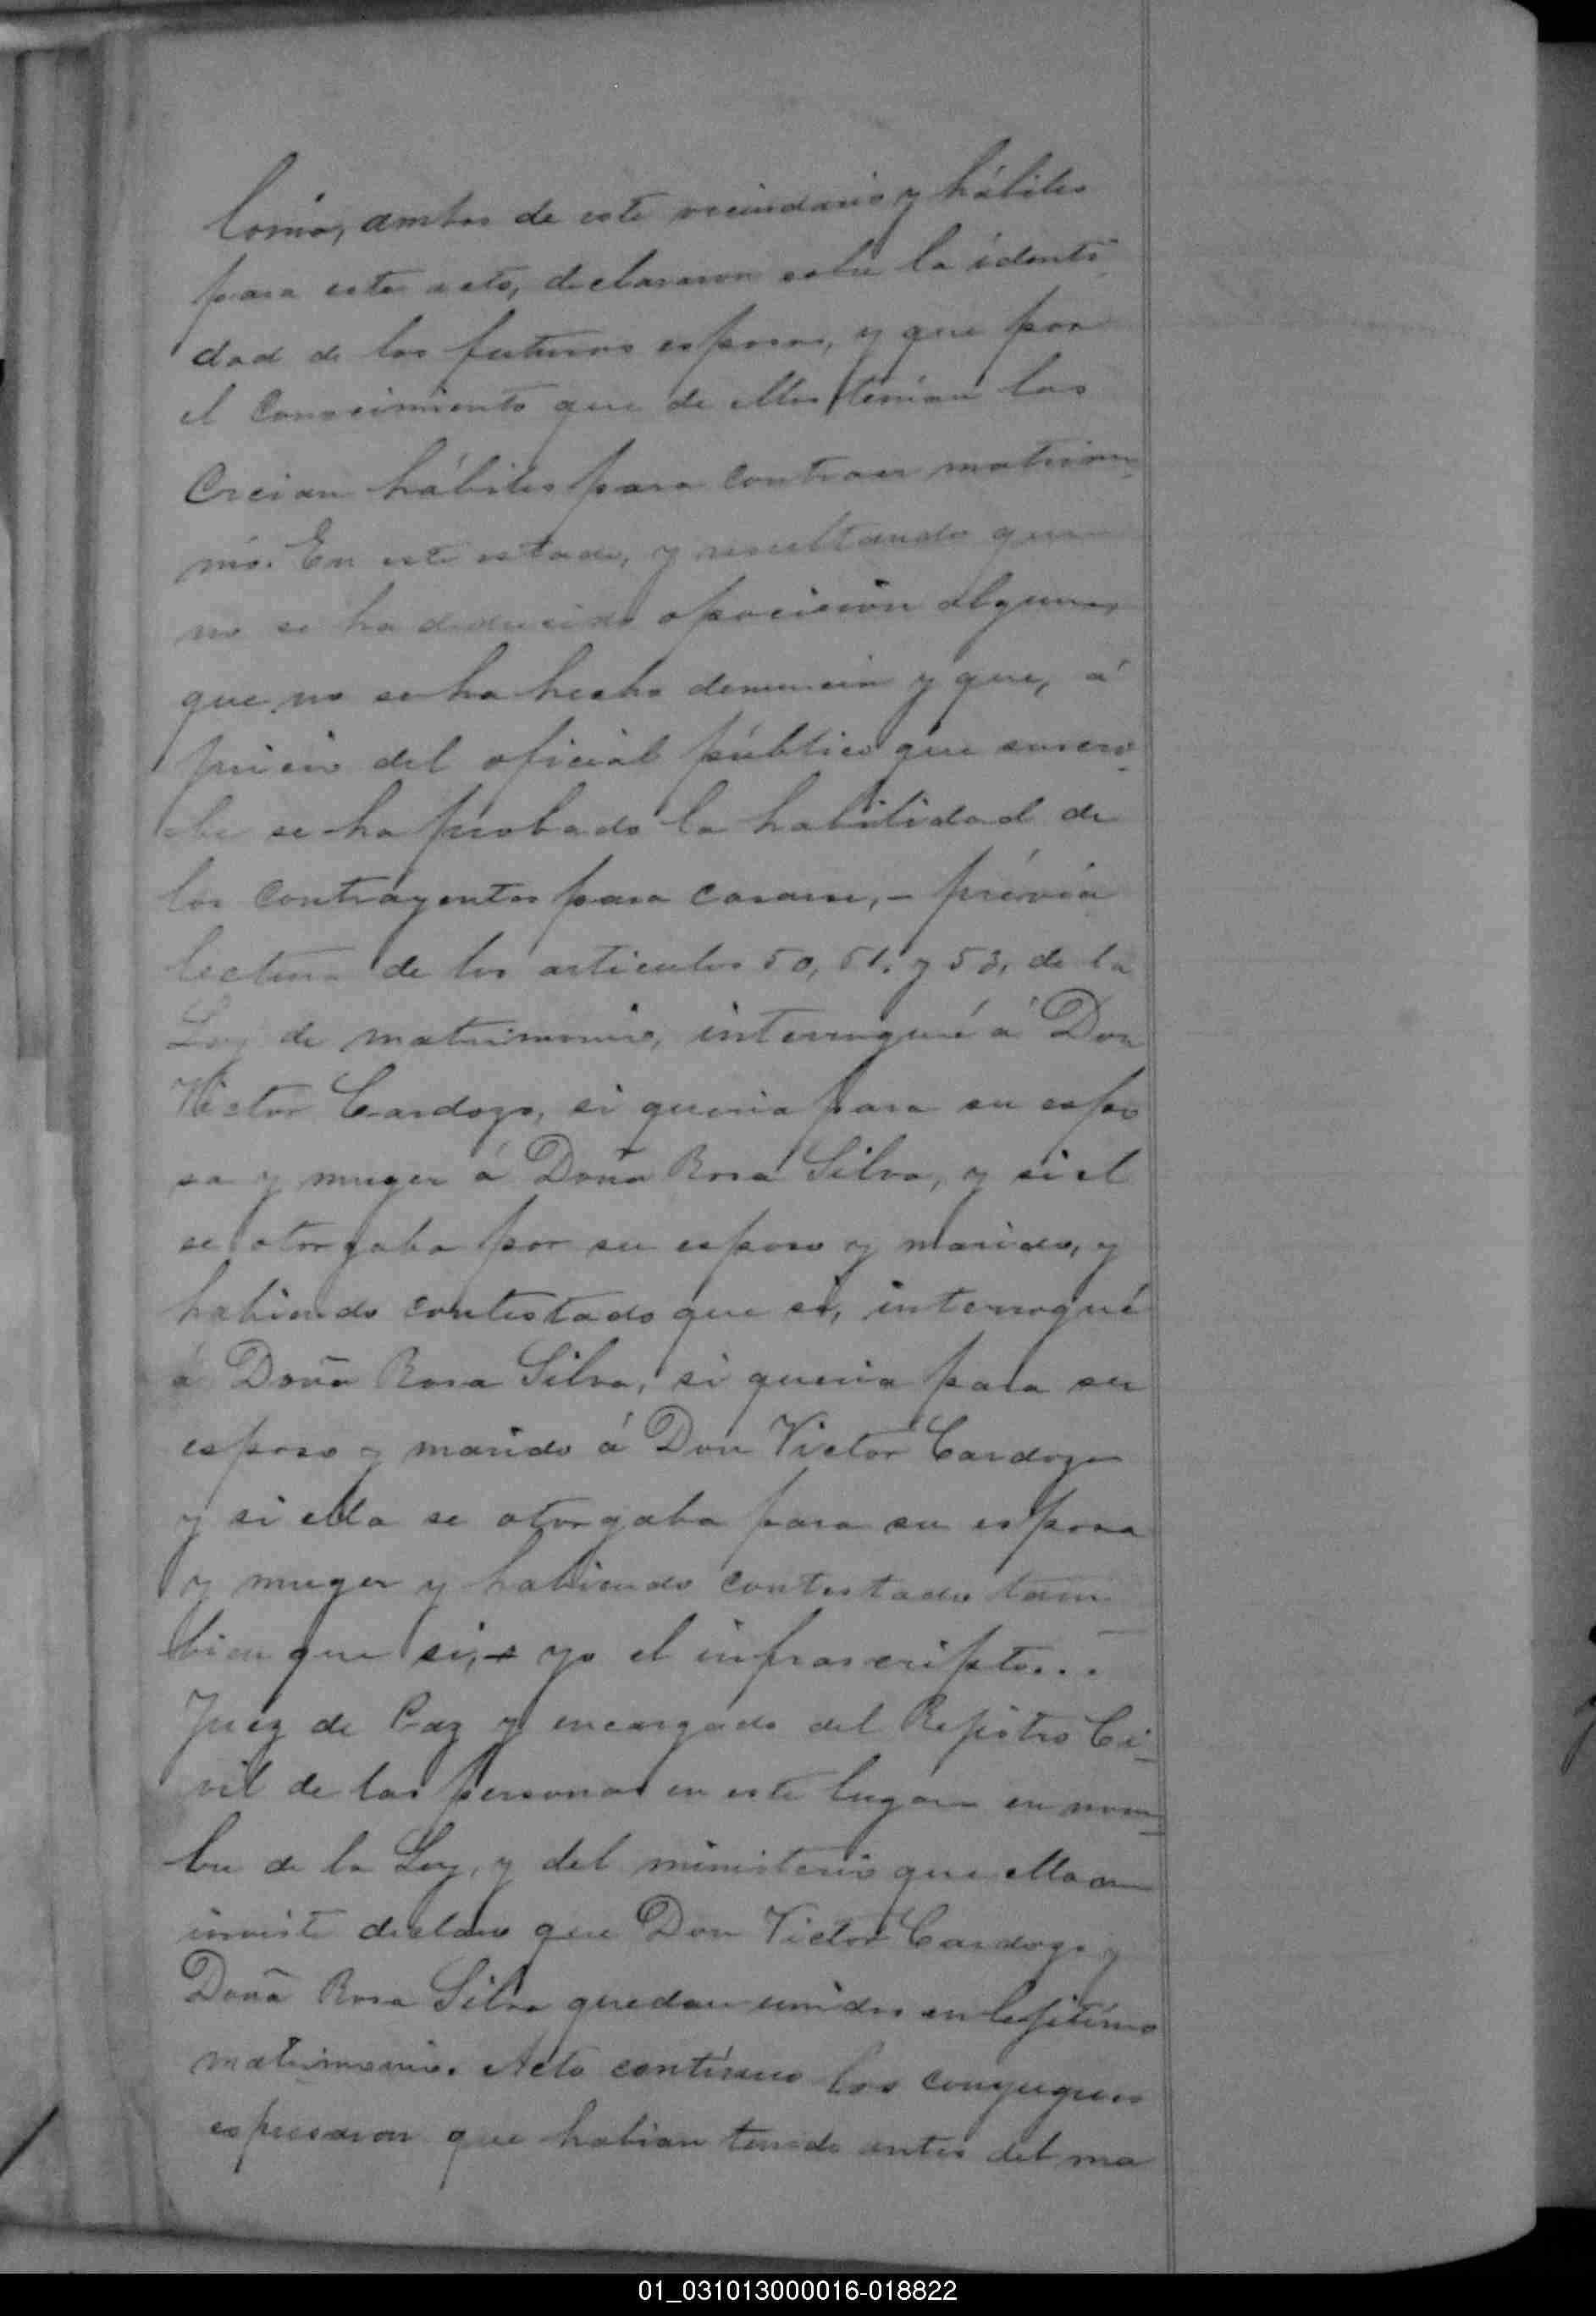 lonio, ambos de este vecindario y hábiles
para este acto, declararon sobre la identi
dad de los futuros esposos, y que por
el conocimiento que de ellos tenían los
creian hábiles para contraer matrimo-
nio. En este estado, y resultando que
no se ha deducido oposicion alguna,
que no se ha hecho denuncia y que, á
juicio del oficial público que suscri-
be se ha probado la habilidad de
los contrayentes para casarse, - prévia
lectura de los articulos 50, 51, y 53, de la
Ley de matrimonio, interrogué á Don
Victor Cardozo, si queria para su espo
sa y muger á Doña Rosa Silva, y si el
se otorgaba por su esposo y marido, y
habiendo contestado que si, interrogué
á Doña Rosa Silva, si queria para su
esposo y marido á Don Victor Cardozo
y si ella se otorgaba para su esposa
y muger y habiendo contestado tam-
bien que si, - yo el infrascripto...
Juez de Paz y encargado del Rejistro Ci-
vil de las personas en este lugar en nom-
bre de la Ley, y del ministerio que ella me
inviste declaro que Don Victor Cardozo y
Doña Rosa Silva quedan unidos en lejítimo
matrimonio. Acto contínuo los conyugues
espresaron que habian tenido antes del ma
01_031013000016-018822